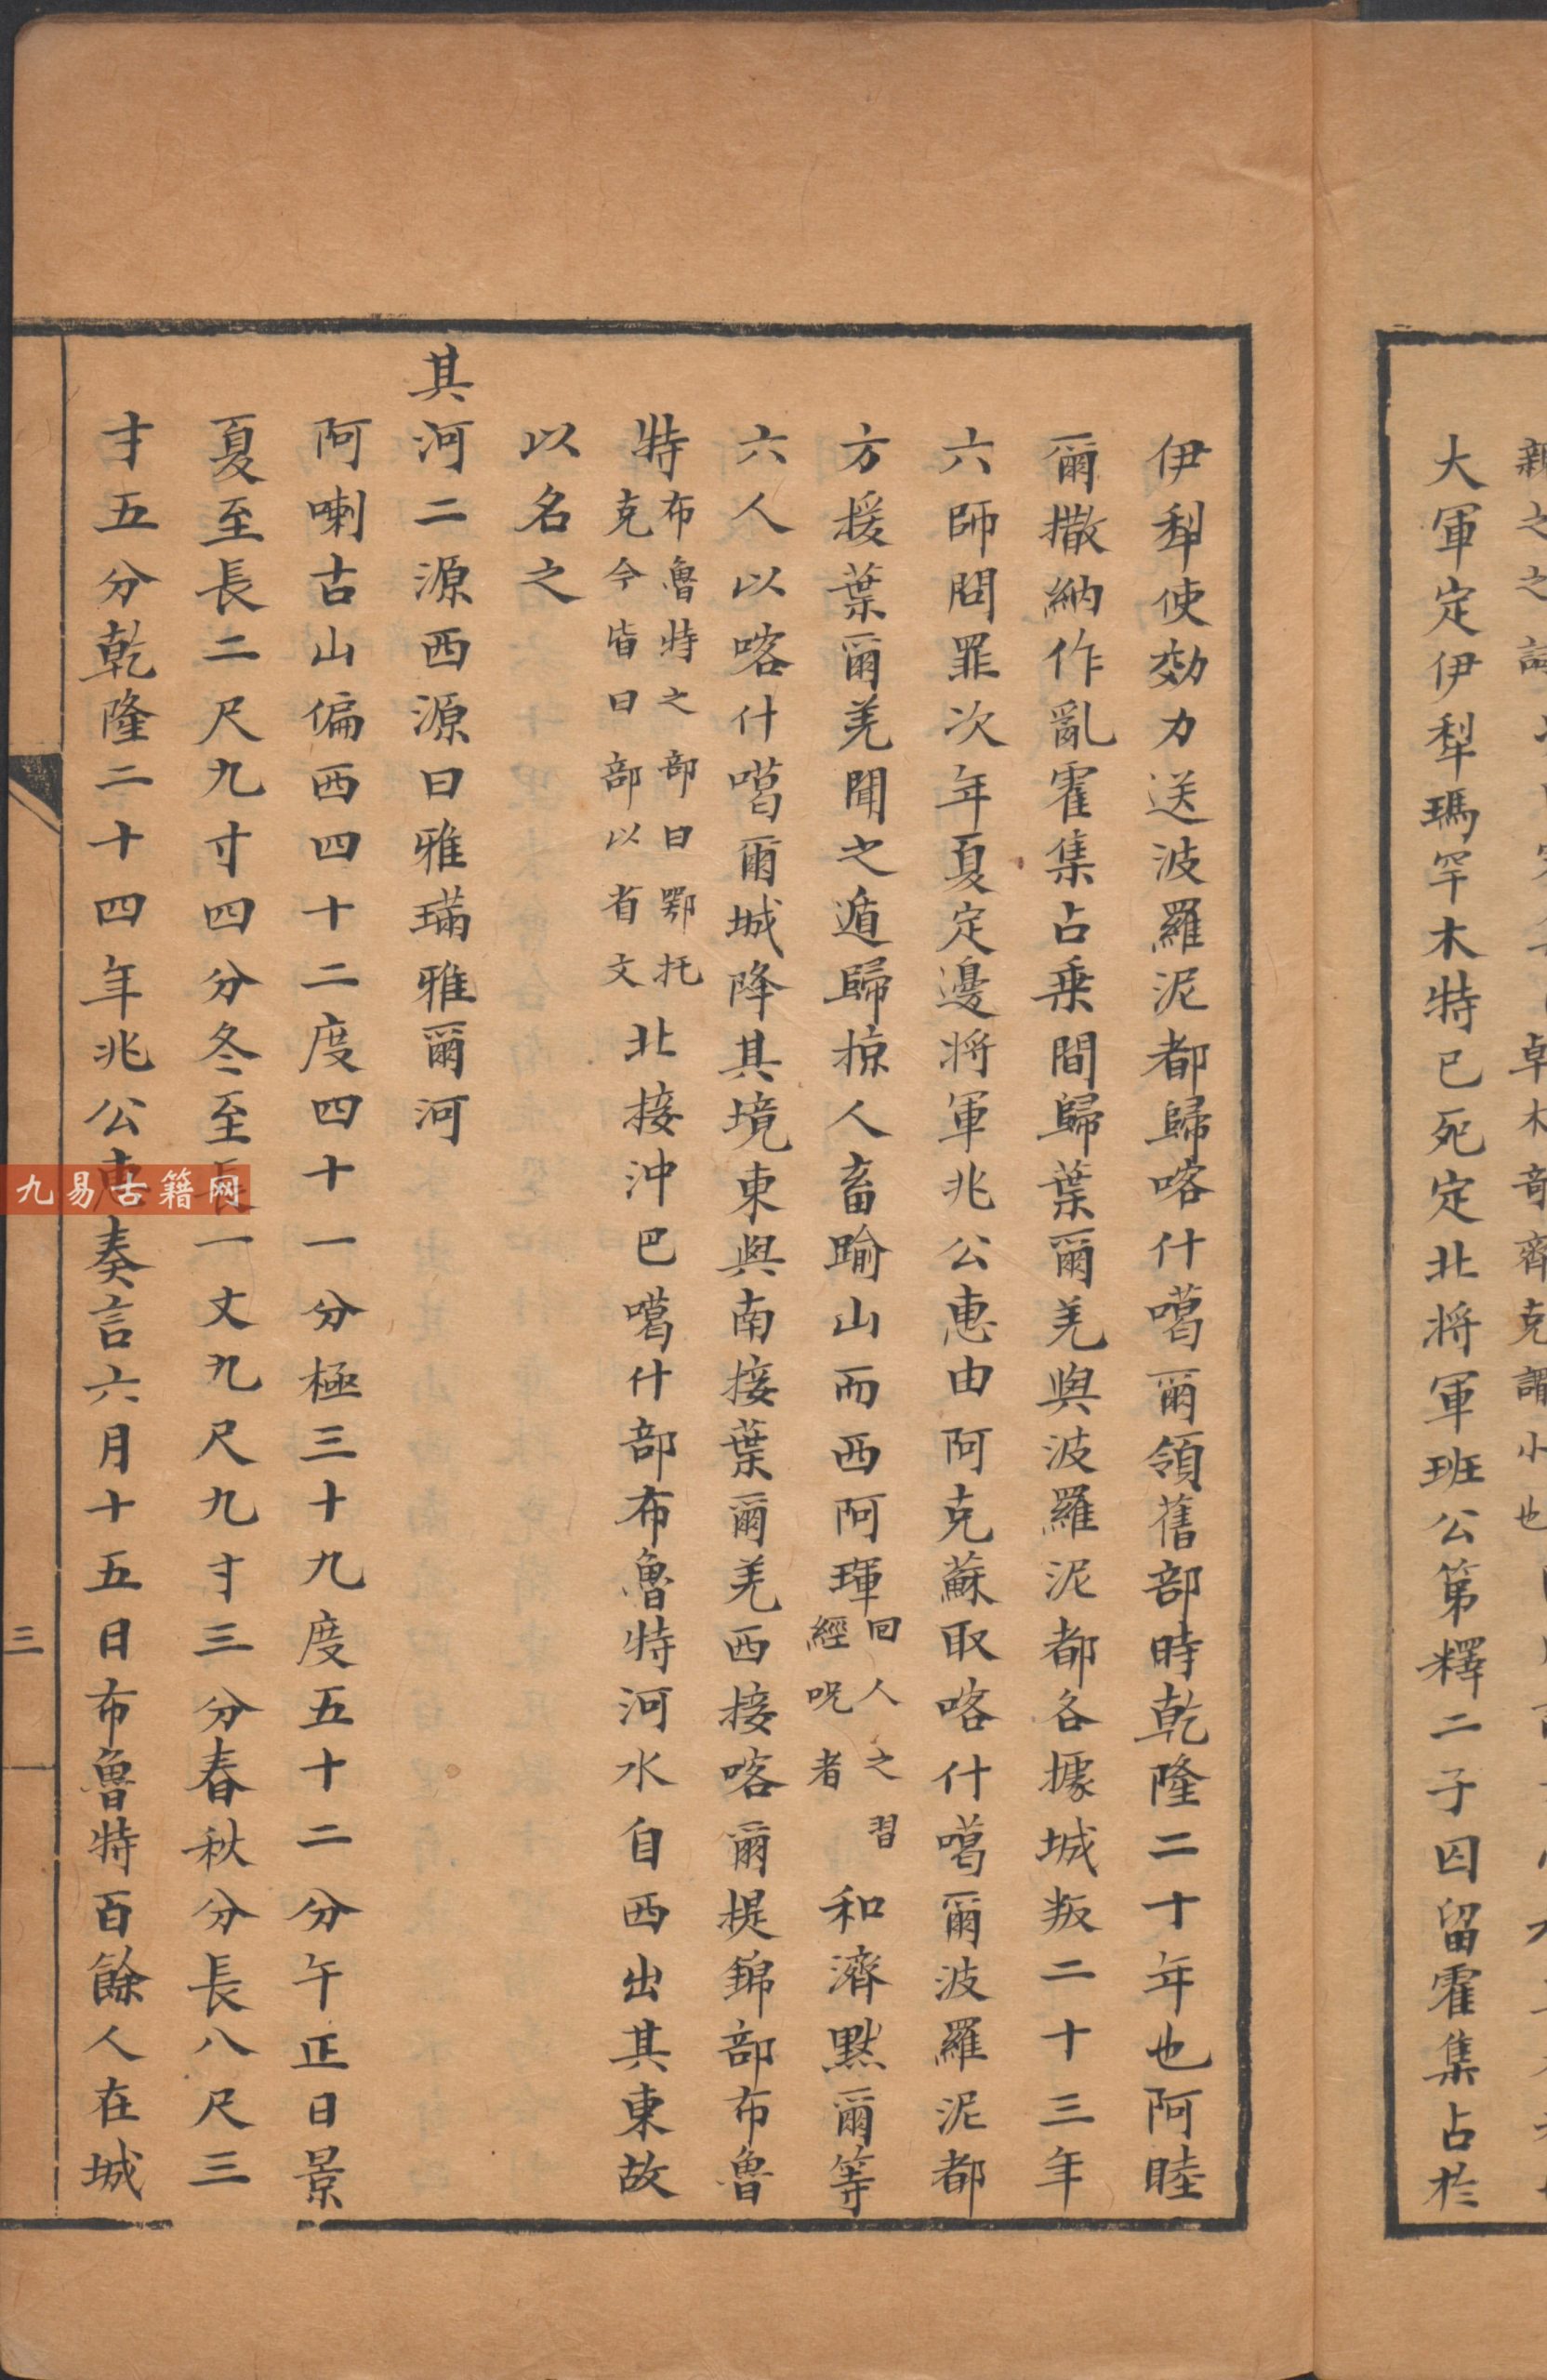 大軍定伊犁瑪罕木特已死定北將軍班公第釋二子囚留霍集占於
伊犁使効力送波羅泥都歸喀什噶爾領舊部時乾隆二十年也阿睦
爾撒納作亂霍集占乗間歸葉爾羌與波羅泥都各據城叛二十三年
六師問罪次年夏定邊將軍兆公惠由阿克蘇取喀什噶爾波羅泥都
方援葉爾羌聞之遁歸掠人畜踰山而西阿琿回人之習經呪者和濟黙爾等
六人以喀什噶爾城降其境東與南接葉爾羌西接喀爾提錦部布魯
特布魯特之部曰鄂托克今皆曰部以省文北接沖巴噶什部布魯特河水自西出其東故
以名之
其河二源西源曰雅璊雅爾河
阿喇古山偏西四十二度四十一分極三十九度五十二分午正日景
夏至長二尺九寸四分冬至長一丈九尺九寸三分春秋分長八尺三
寸五分乾隆二十四年兆公惠奏言六月十五日布魯特百餘人在城
三
九易古籍网